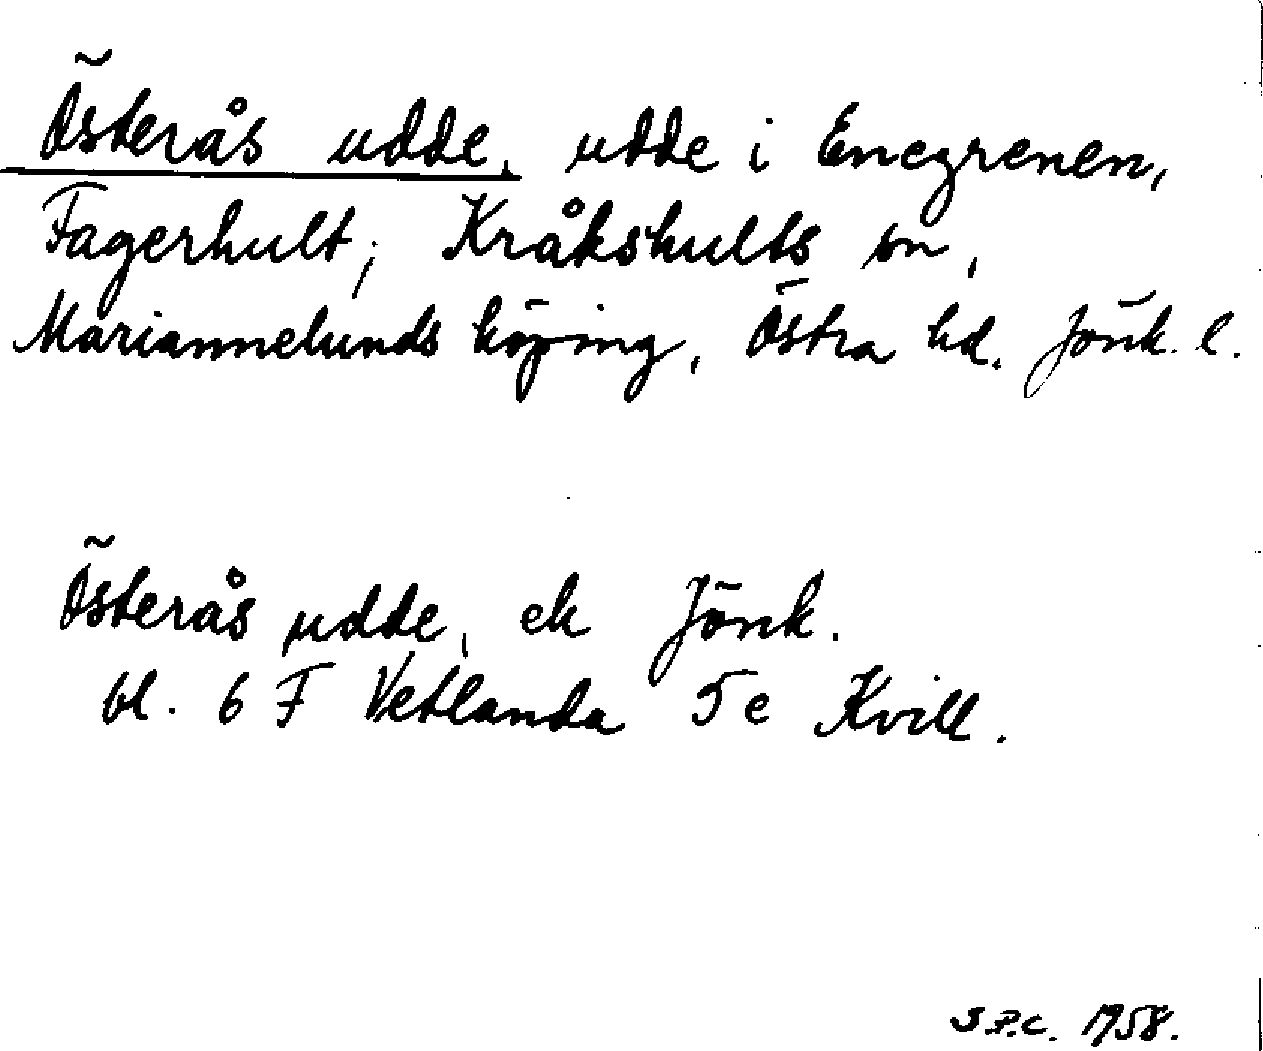 Österås udde, udde i Enegrenen,
Fagerhult, Kråkshults sn,
Mariannelunds köping, Östra hd. Jönk. l.
Österås udde, ek Jönk.
bl. 6 F Vetlanda 5 e Kvill.
S.P.C. 1958.